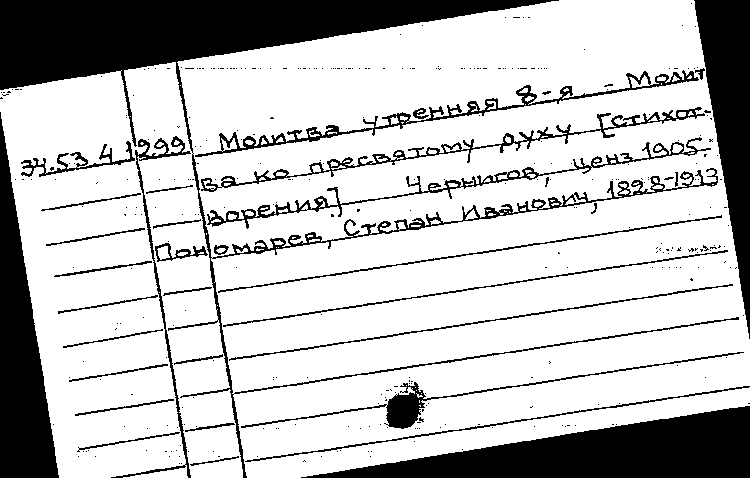 34.53.4.1299 Молитва утренняя 8-я. - Молит
ва ко пресвятому духу [стихот-
ворения]. Чернигов, ценз 1905.
Пономарев, Степан Иванович, 1828-1913